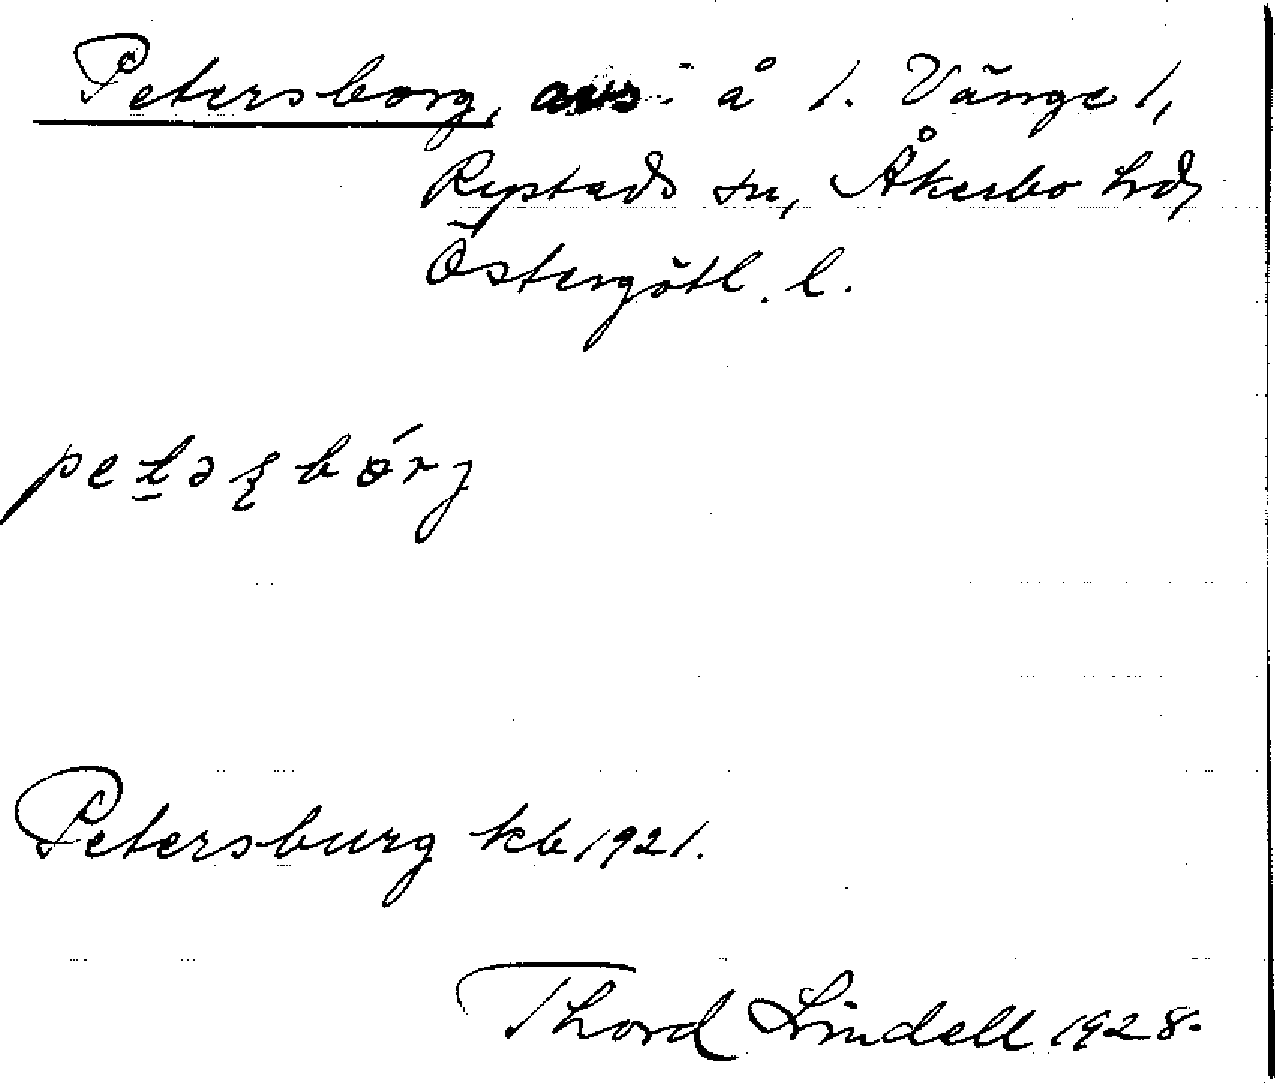 Petersborg, avs. å 1. Vänge 1,
Rystads sn, Åkerbo hd,
Östergötl. l.
petəʂbɵ́rj
Petersburg kb 1921.
Thord Lindell 1928.